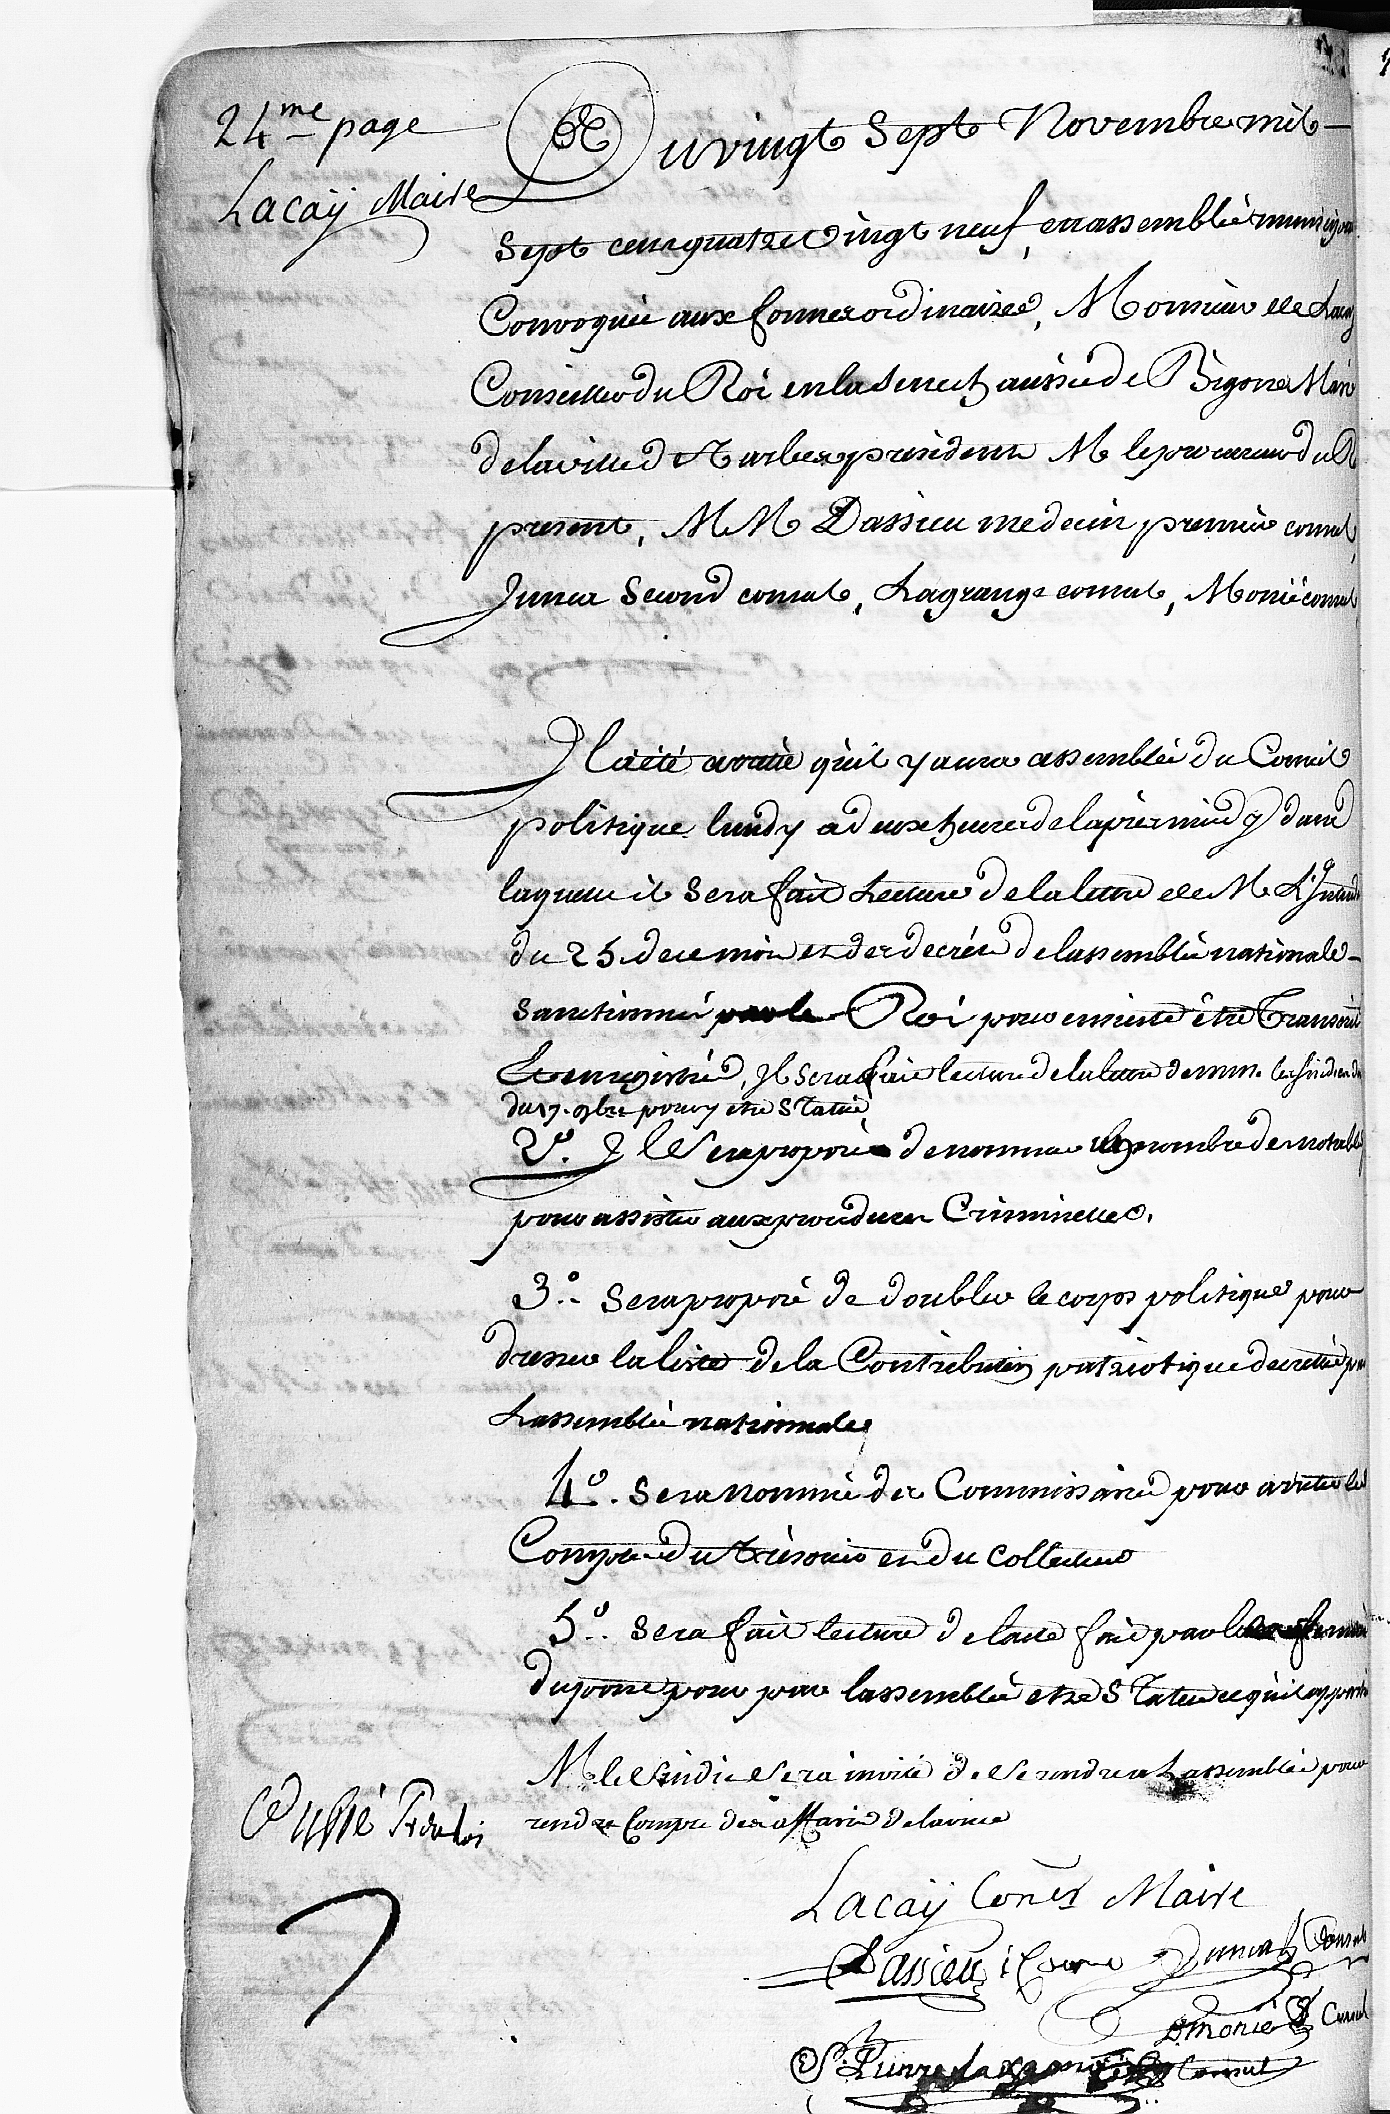 24me page
Lacaÿ Maire
Du vingt Sept Novembre mil
Sept cens quatre vingt neuf, en assemblée municipa
Convoquée aux formes ordinaires, Monsieur de Lacay
Conseiller du Roi en la Senechaussée de Bigorre Maire
de la ville de Tarbes president M le procureur du R
present, MM Dassieu medecin premier consul,
Junca Second consul, Lagrange consul, Monié consul
Il a été arreté qu'il y aura assemblée du Conseil
politique lundy a deux heures de lapres midy dans
laquelle il Sera fait Lecture de la lettre de M L'Intend
du 25 de ce mois et des decrets de lassemblée nationale
Sanctionnés par le Roi pour ensuite être Transcrits
Et enregistrés, Il Sera fait lecture de la lettre de mrs. les sindics
du 17. 9bre pour y etre Statué
2o. Il Sera proposé de nommer le nombre de notables
pour assister aux procedures Criminelles.
3o. Sera proposé de doubler le corps politique pour
dresser la liste de la Contribution patriotique decretée par
Lassemblée nationale
4o. Sera nommé des Commissaires pour arreter les
Comptes du trésorier et du Collecteur
5o. Sera fait lecture de lacte fait par les
pour par lassemblée etre Statué ce qu'il apparti
M le Sindic Sera invité de Se rendre a Lassemblée pour
rendre Compte des affaires de la ville
Lacaÿ Coner Maire
Dassieu Junca Consul
Monié Consul
St Pierre Lagrange Consul